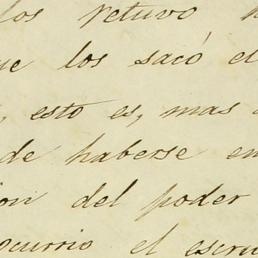 los retuvo
que los sacó el
, esto es, mas
de haberse en
ion del poder
ocurrio el escru